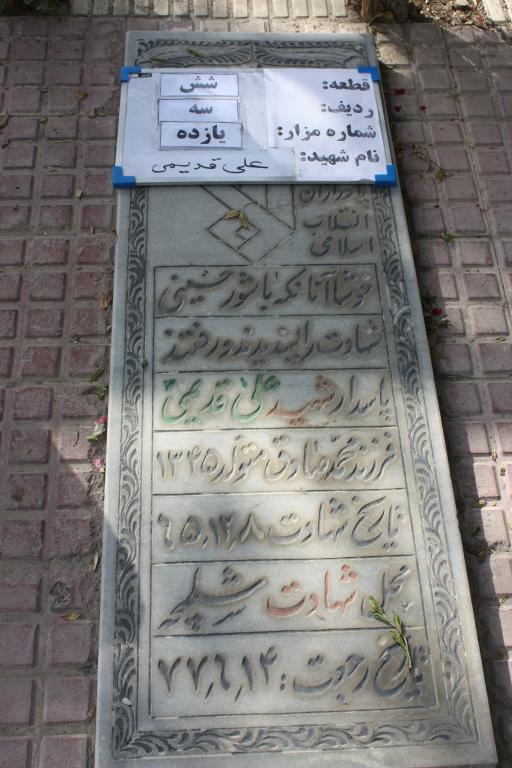 قطعه: شش
ردیف: سه
شماره مزار: یازده
نام شهید: علی قدیمی
پاسداران
انقلاب
اسلامی
خوشا آنانکه با شور حسینی
شهادت را پذیرفتند و رفتند
پاسدار شهید علی قدیمی
فرزند محمدصادق متولد ۱۳۴۵
تاریخ شهادت ۶۵٫۱۲٫۸
محل شهادت شلمچه
تاریخ رجعت: ۷۷٫۶٫۱۴